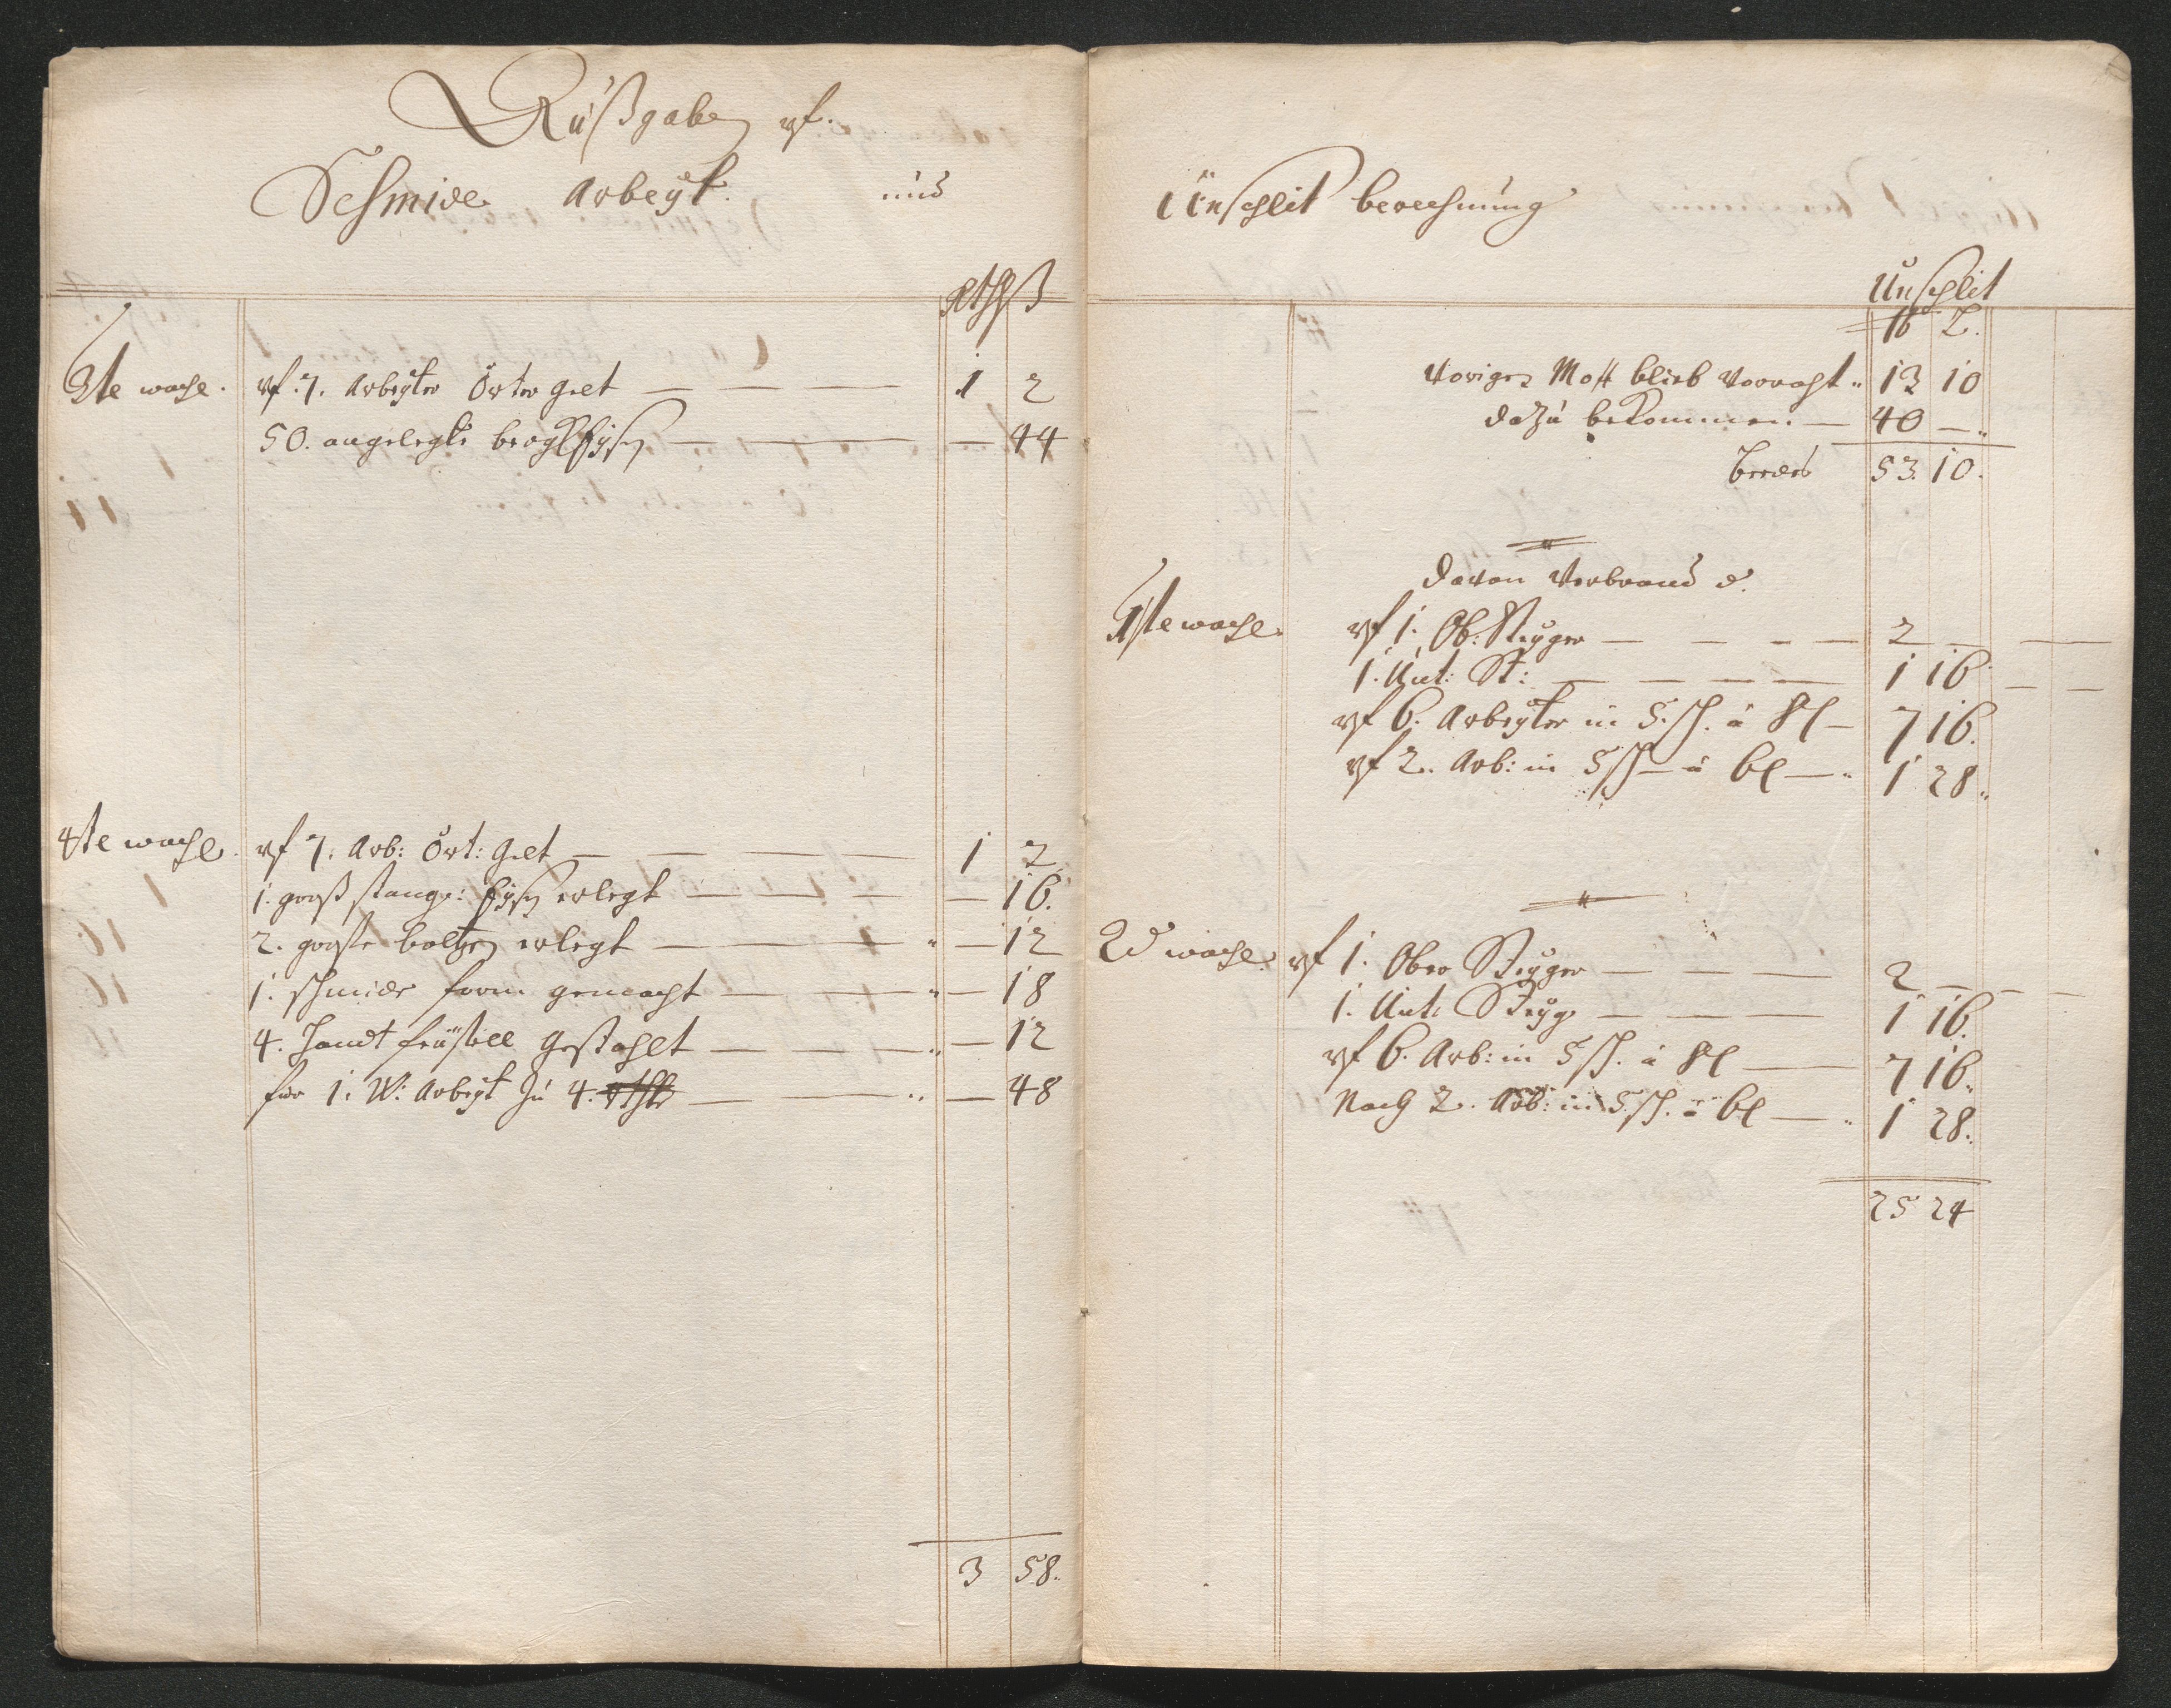 Außgaben vf.
Schmide Arbeyt. und
Rthl ß
3te woche. vf. 7. Arbeyter Örter gelt — — — 1 2
50. angelegte bergkEysen — — — 44
4te woche. vf 7. Arb: Ört: gelt — — — 1 2
1. groß stange: Eysen erlegt — — — 16.
2. große boltzen erlegt — — — 12
1. schmide form gemacht — — — 18
4. handt feüstell gestahlt — — — 12
für 1. W: Arbeyt zu 4. — — — 48
3 58.
Unschlit berechnung
Unschlit
℔ L.
Voriges Mott blieb Vorraht 13 10
dazu bekommen — 40 —
beedes 53. 10.
davon Verbrand d.
1ste woche. vf 1. Ob: Steyger — — — 2 —
1. Unt: St: — — — 1 16
vf 6. Arbeyter in 5. sch. à 8 l — 7 16.
vf 2. Arb: in 5 sch — à 6 l — 1 28.
2d woche. vf 1. Ober Steyger — — — 2 —
1. Unt: Steyg — — — 1 16.
vf 6. Arb: in 5 sch. à 8 l — 7 16.
Noch 2. Arb: in 5. sch. à 6 l — 1 28.
25 24